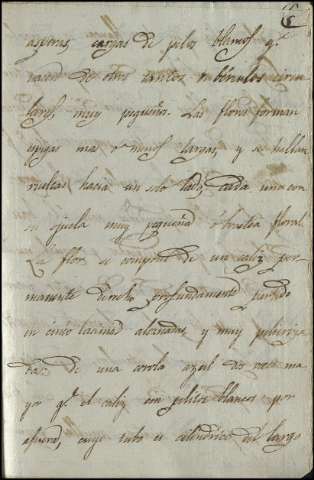 asperas cargas de pelos blancos q.e
nacen de otros tantos tuberculos circu
lares muy pequeños. Las flores forman
espigas mas o menos largas, y se hallan
vueltas hacia un solo lado, cada una con
su ojuela muy pequeña ó bractea floral
La flor se compone de un caliz per
manente derecho profundamente partido
en cinco lacinias alesnadas, y muy puntiagu
das: de una corola azul dos veces ma
yor q.e el caliz con pelitos blancos por
afuera, cuyo tubo es cilindrico del largo